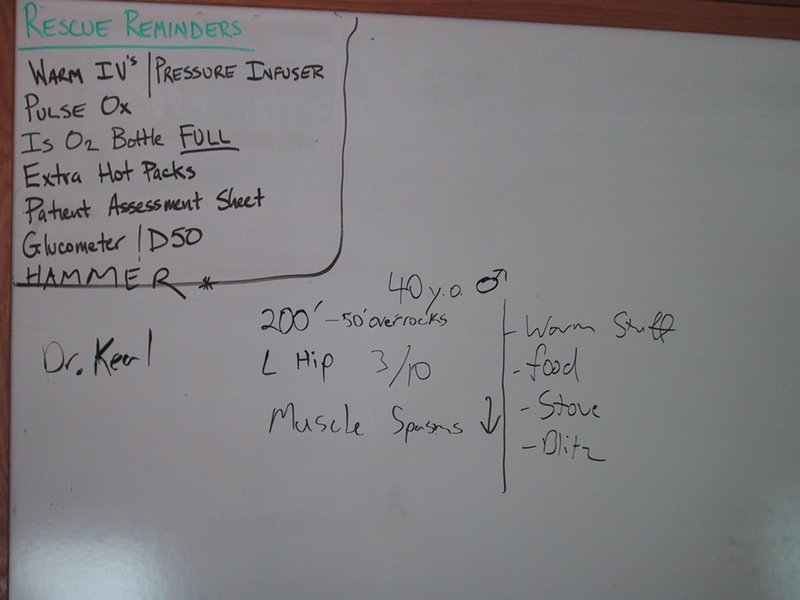 RESCUE REMINDERS
WARM IV's | PRESSURE INFUSER
PULSE Ox
Is O2 Bottle FULL
Extra Hot Packs
Patient Assessment Sheet
Glucometer | D50
HAMMER *
40 y.o. ♂
200' - 50' over rocks
L Hip 3/10
Muscle Spasms ↓
- Warm Stuff
- food
- Stove
- Blitz
Dr.